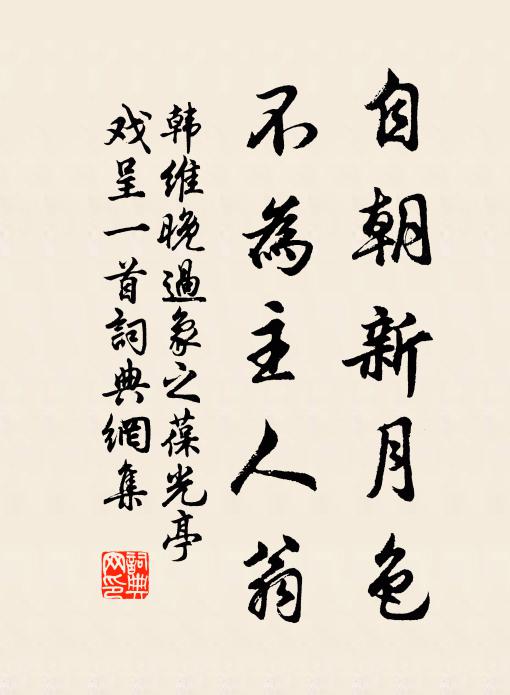 自朝新月色
不為主人翁
韩维晚過象之葆光亭
戏呈一首詞典網集
詞典网印